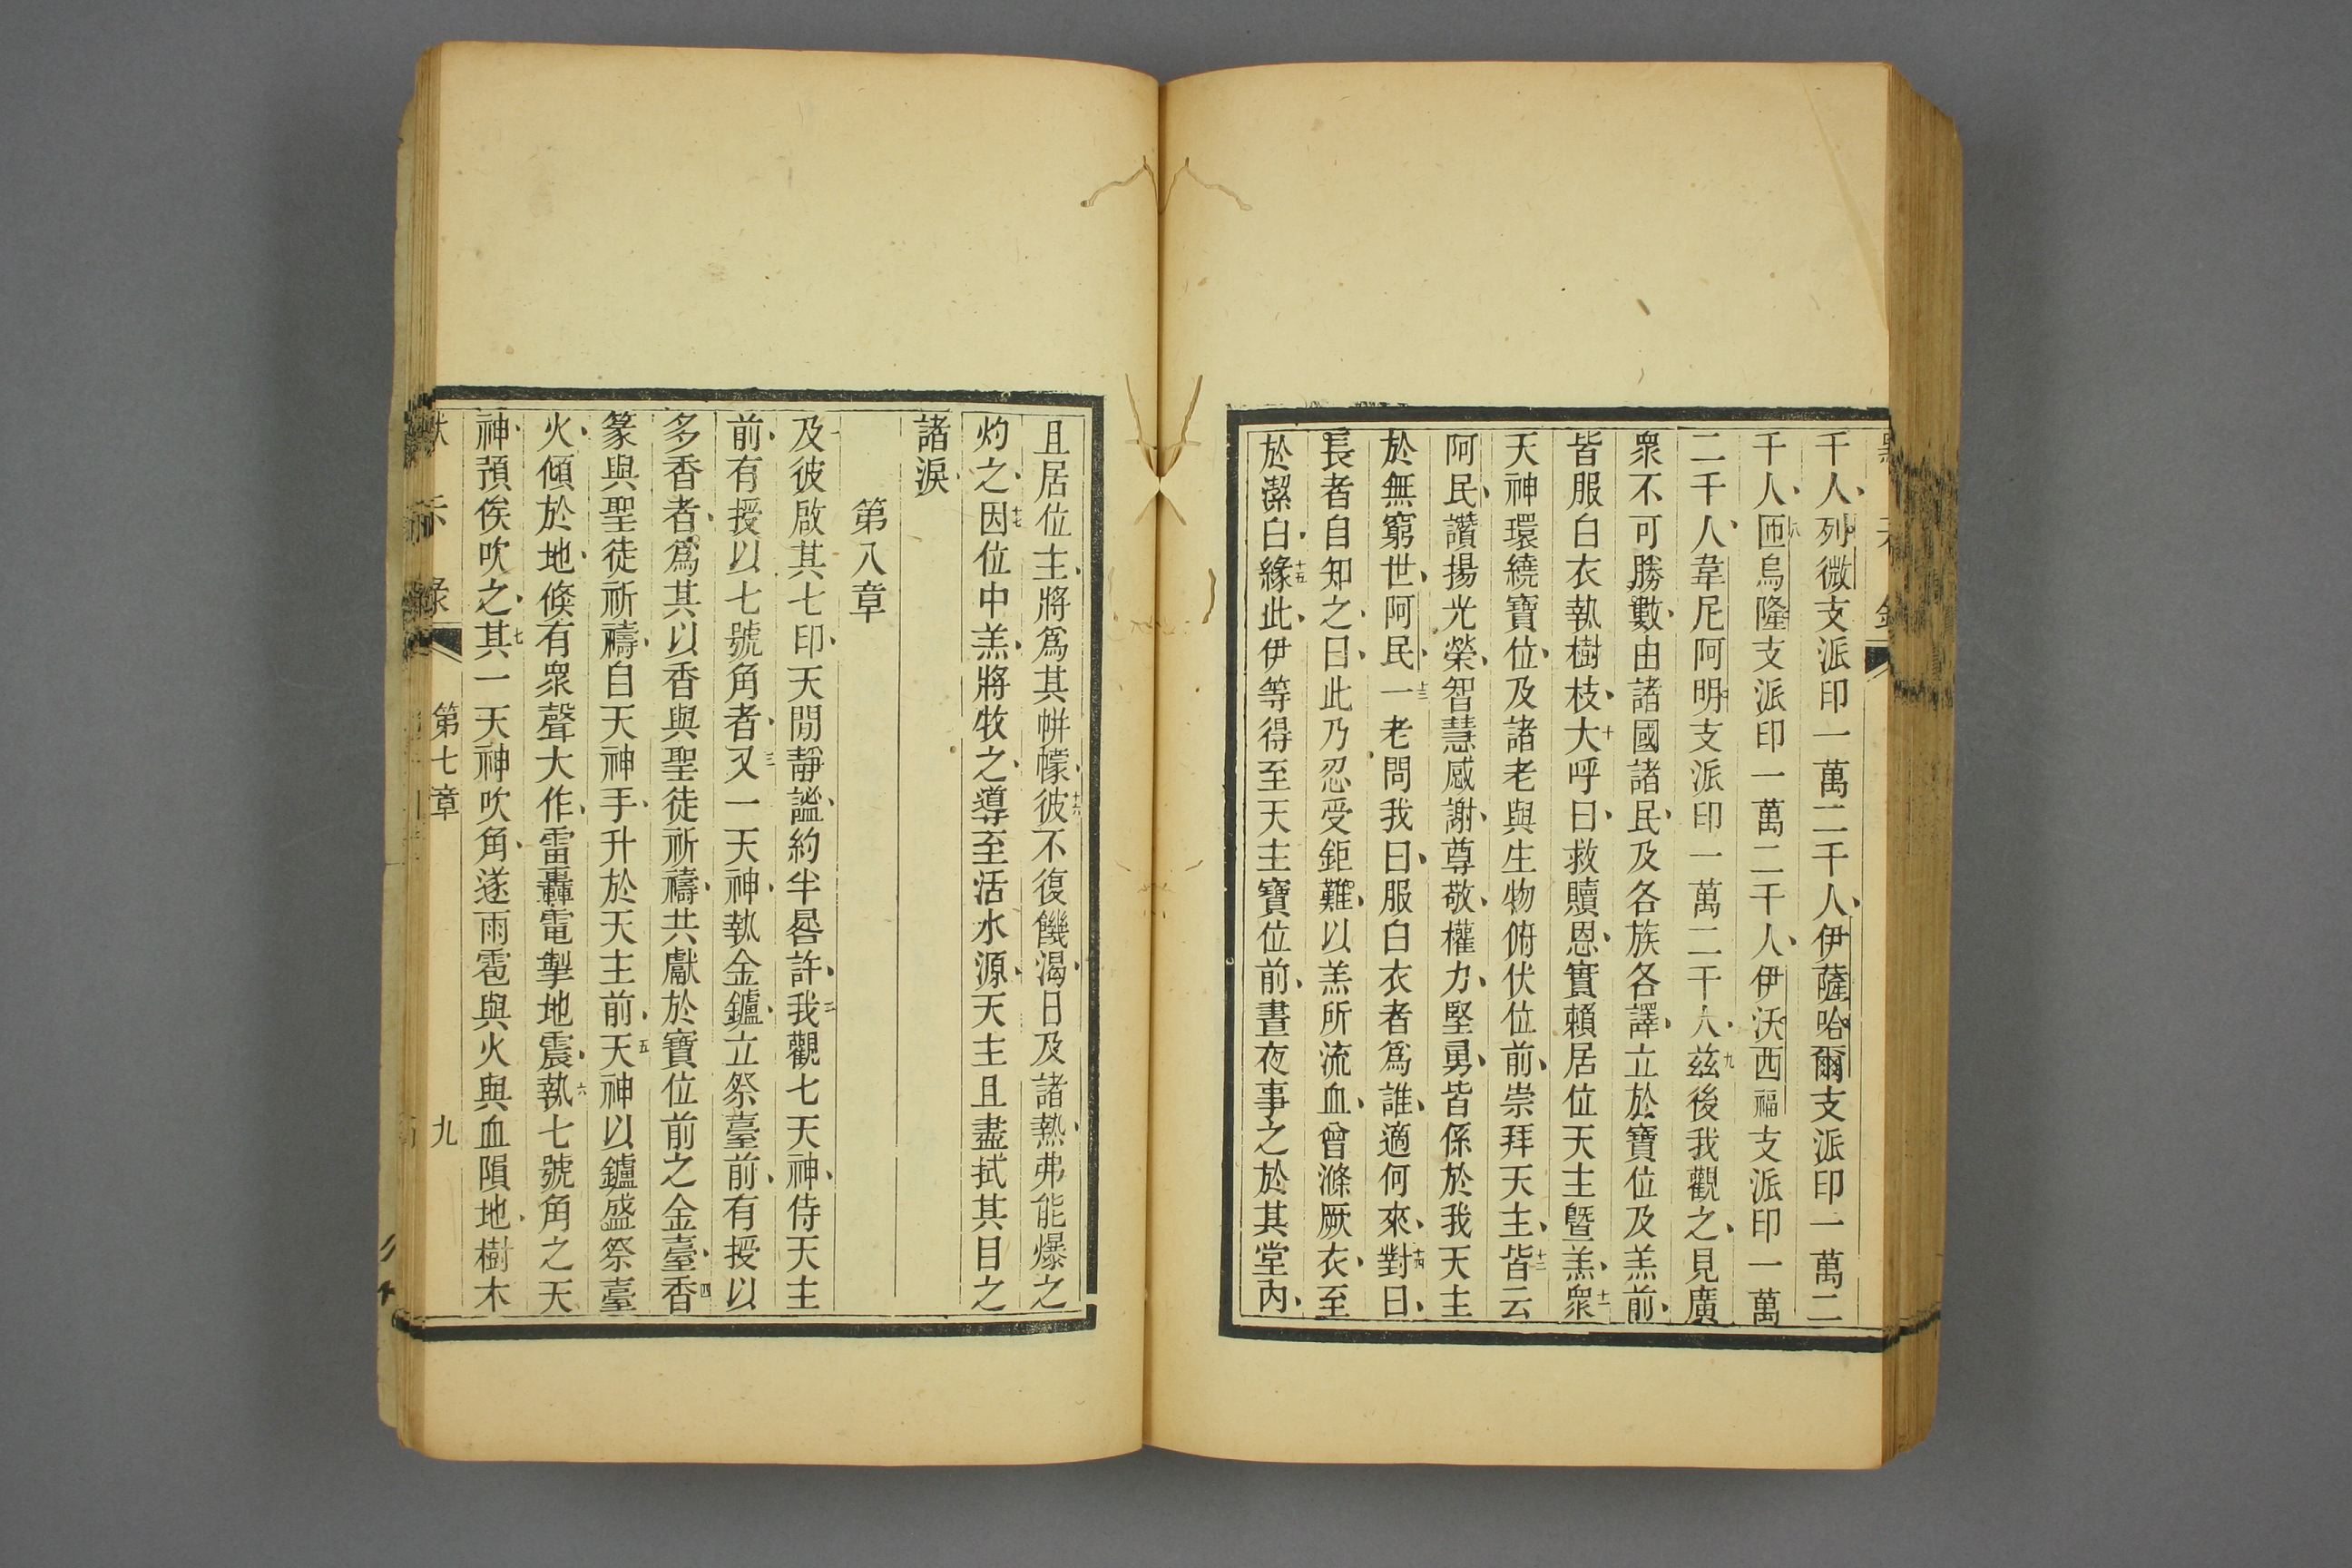 千人、列微支派印一萬二千人、伊薩哈爾支派印一萬二
千人、八匝烏隆支派印一萬二千人、伊沃西福支派印一萬
二千人、韋尼阿明支派印一萬二千人、九兹後我觀之、見廣
衆不可勝數、由諸國諸民、及各族各譯、立於寶位及羔前、
皆服白衣執樹枝、十大呼曰、救贖恩、實賴居位天主曁羔、十一衆
天神環繞寶位、及諸老與生物俯伏位前、崇拜天主、十二皆云
阿民、讚揚光榮、智慧感謝、尊敬、權力、堅勇、皆係於我天主
於無窮世、阿民、十三一老問我曰、服白衣者爲誰、適何來、十四對曰、
長者自知之、曰、此乃忍受鉅難、以羔所流血、曾滌厥衣、至
於潔白、十五緣此、伊等得至天主寶位前、晝夜事之於其堂內、
且居位主、將爲其帡幪、十六彼不復饑渴、日及諸熱、弗能爆之
灼之、十七因位中羔、將牧之、導至活水源、天主且盡拭其目之
諸淚、
第八章
一及彼啟其七印、天閒靜謐、約半晷許、二我觀七天神、侍天主
前、有授以七號角者、三又一天神、執金鑪、立祭臺前、有授以
多香者、爲其以香與聖徒祈禱、共獻於寶位前之金臺、四香
篆與聖徒祈禱、自天神手、升於天主前、五天神以鑪盛祭臺
火、傾於地、倐有衆聲大作、雷轟電掣地震、六執七號角之天
神、預俟吹之、七其一天神吹角、遂雨雹與火與血隕地、樹木
示錄
第七章
九